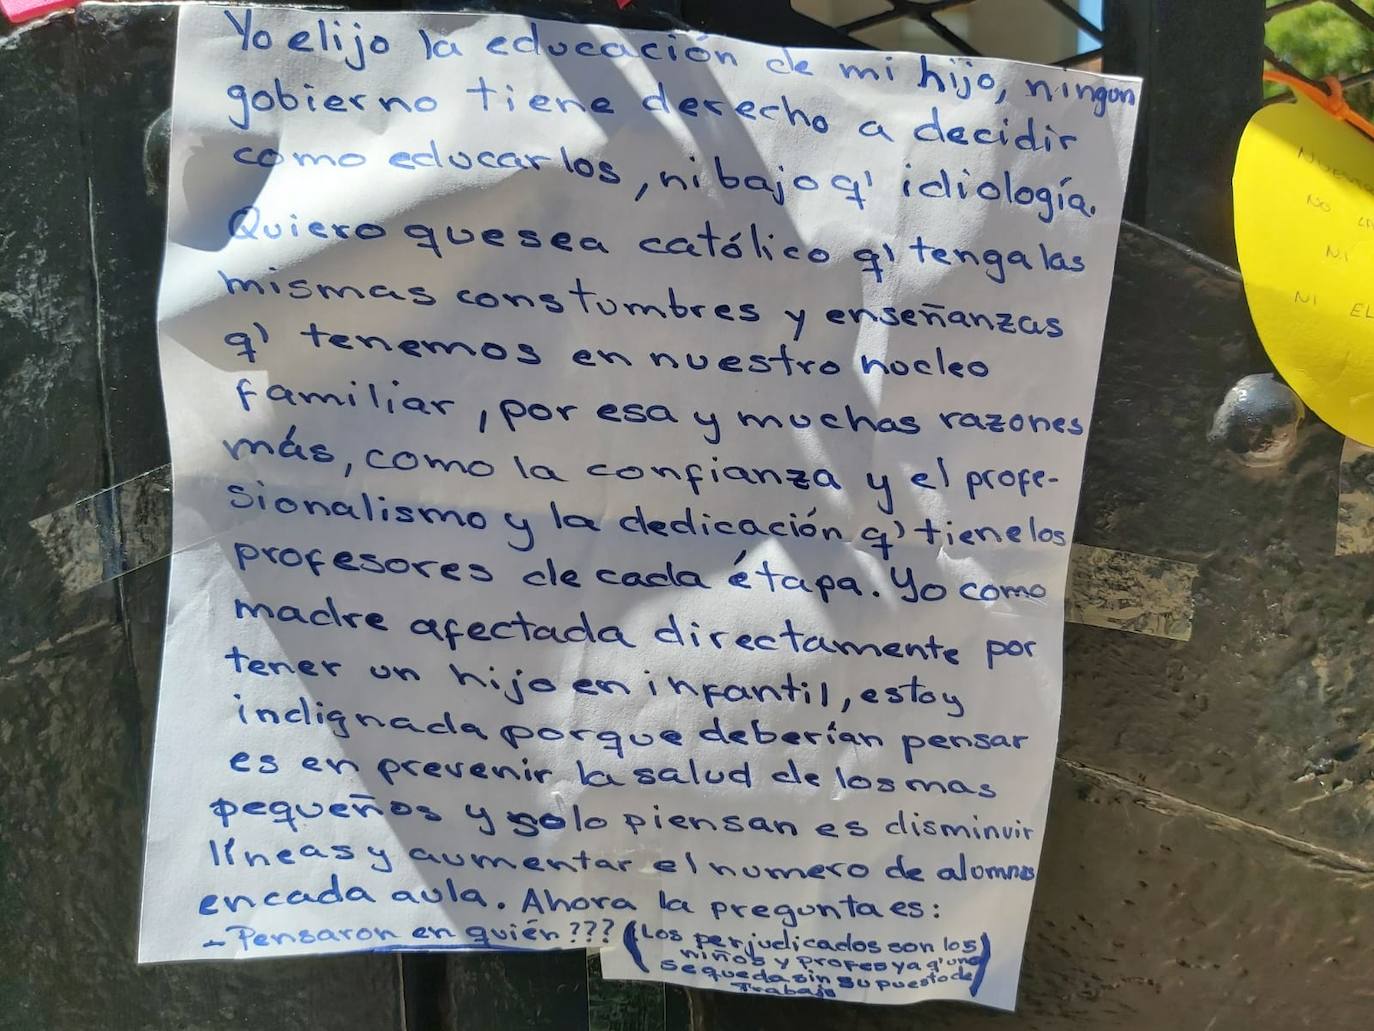 Yo elijo la educación de mi hijo, ningun
gobierno tiene derecho a decidir
como educarlos, ni bajo q' idiología.
Quiero que sea católico q' tenga las
mismas constumbres y enseñanzas
q' tenemos en nuestro nucleo
familiar, por esa y muchas razones
más, como la confianza y el profe-
sionalismo y la dedicación q' tiene los
profesores de cada étapa. Yo como
madre afectada directamente por
tener un hijo en infantil, estoy
indignada porque deberían pensar
es en prevenir la salud de los mas
pequeños y solo piensan es disminuir
líneas y aumentar el numero de alumnos
en cada aula. Ahora la pregunta es:
- Pensaron en quién??? (Los perjudicados son los
niños y profes ya q' uno
se queda sin su puesto de
trabajo)
NO
NI
NI EL